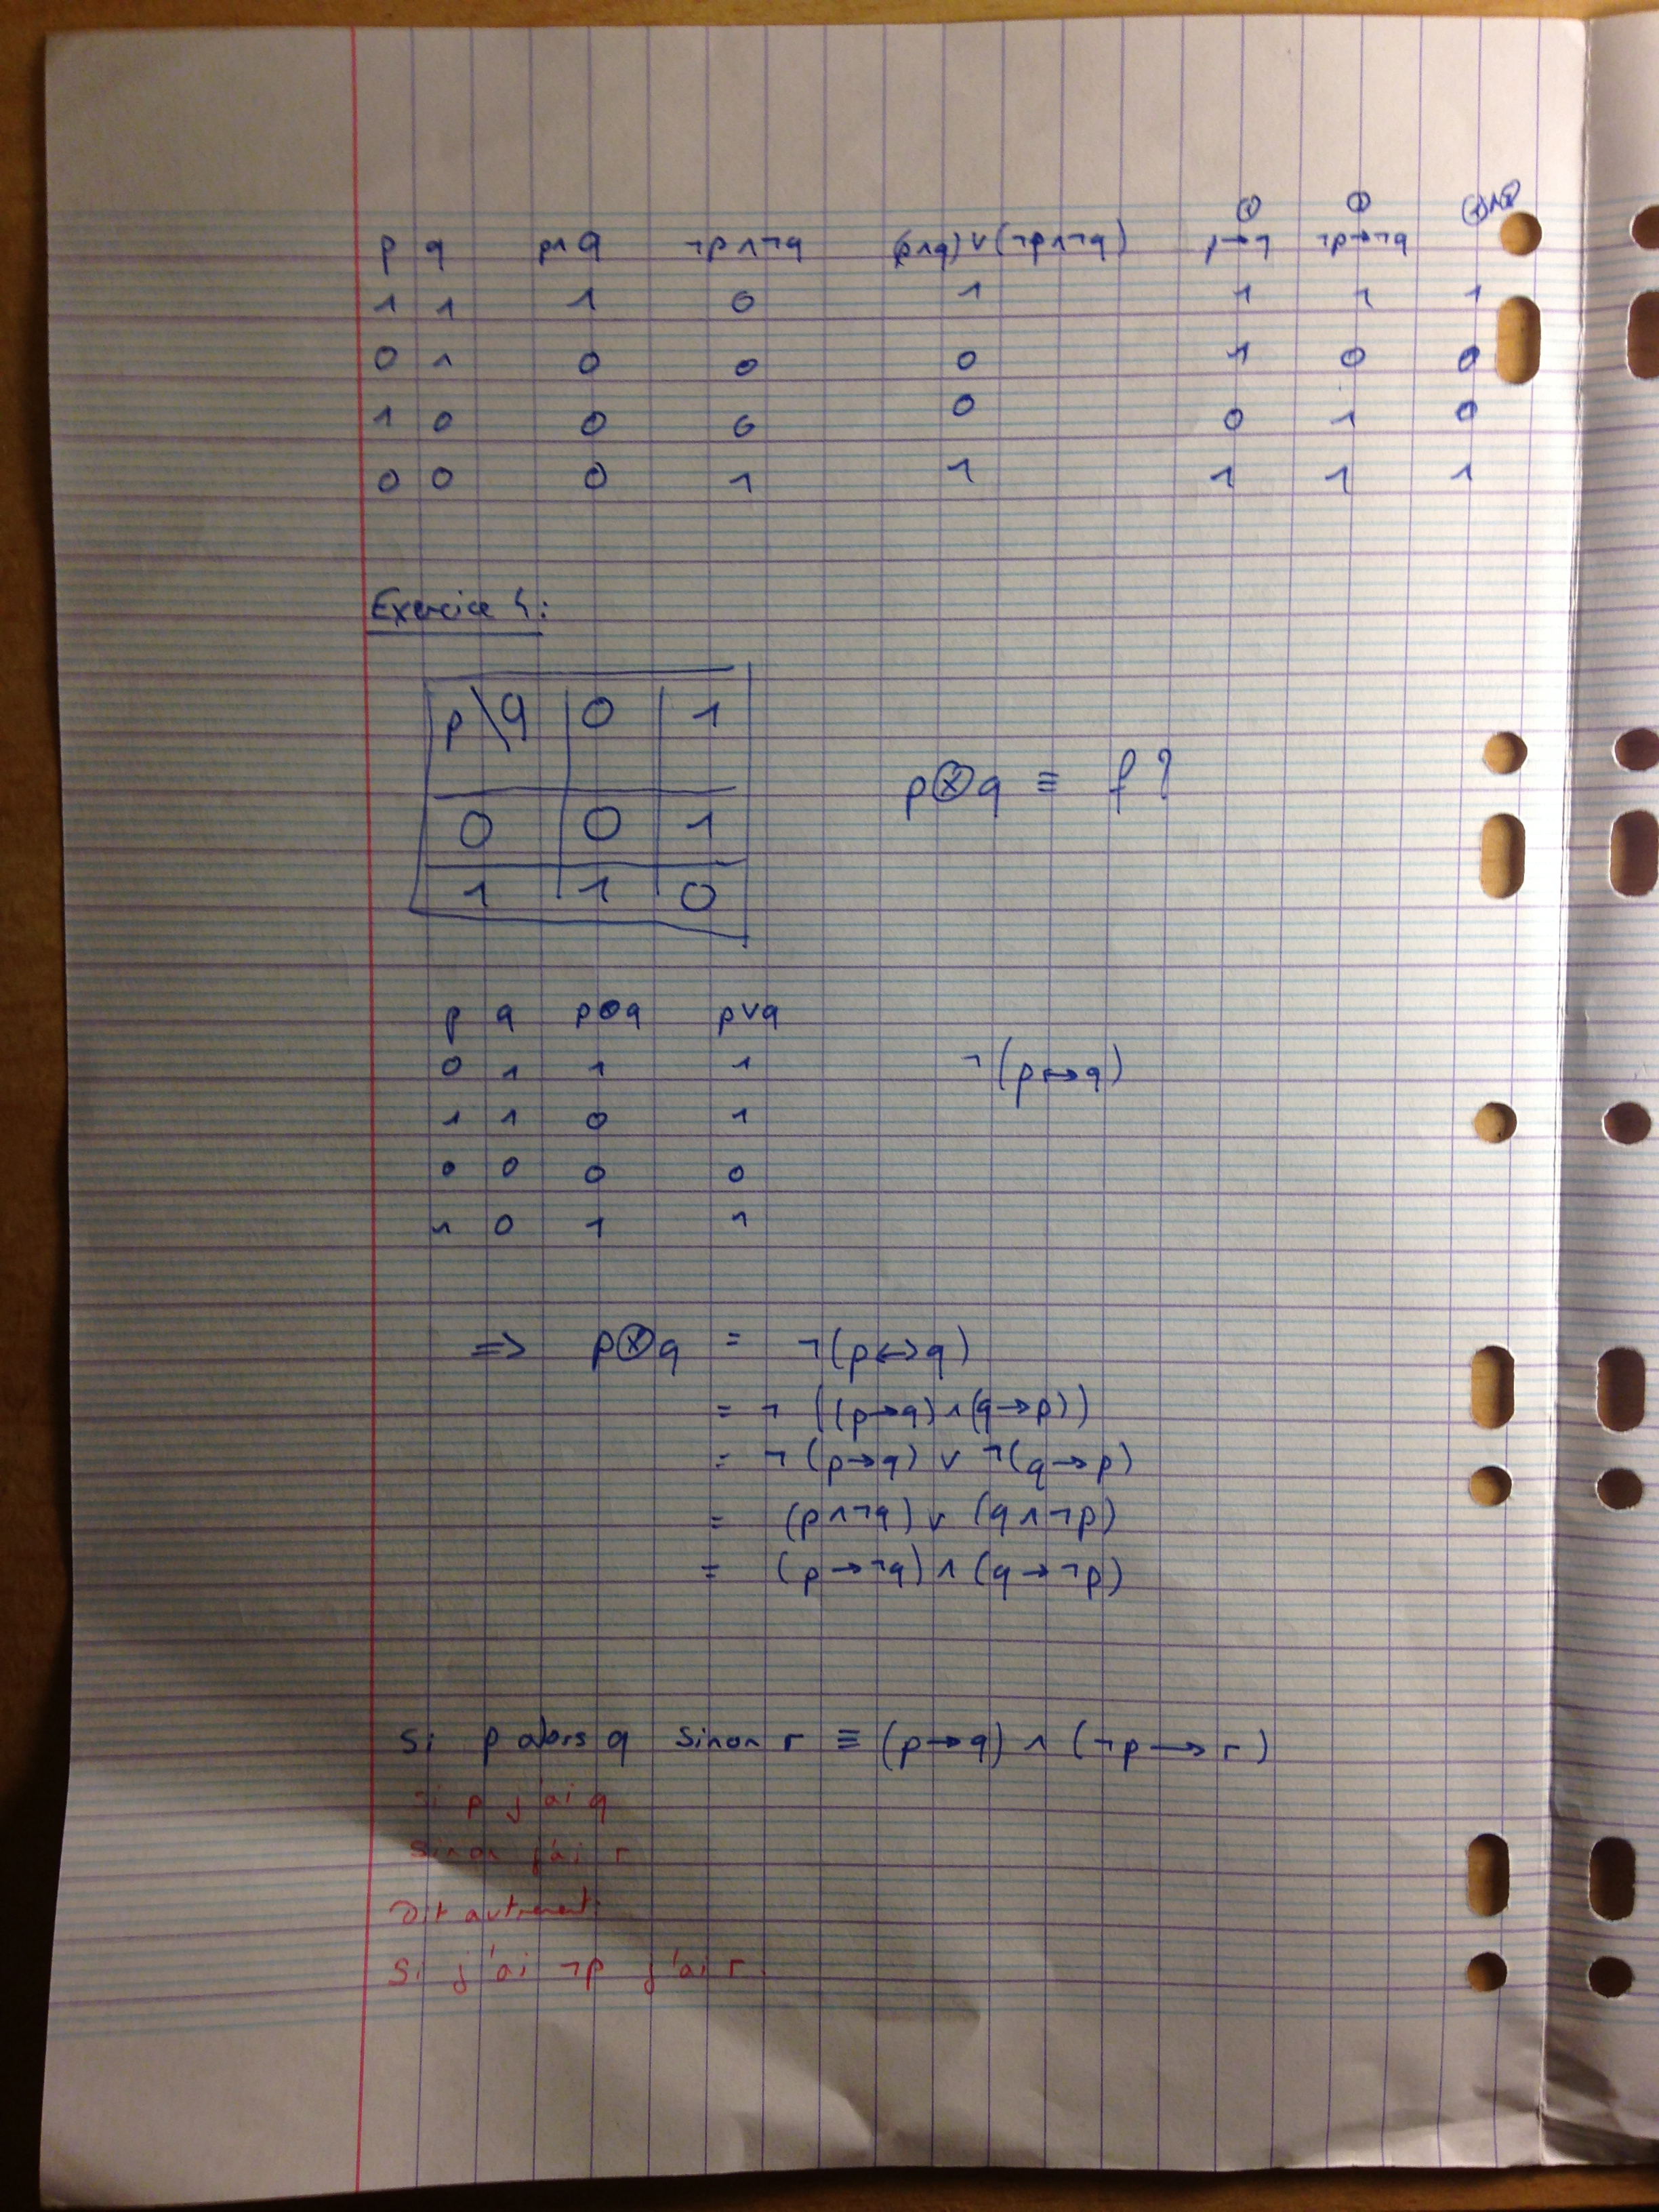 ① ② ①∧②
p q p∧q ¬p∧¬q (p∧q)∨(¬p∧¬q) p→q ¬p→¬q
1 1 1 0 1 1 1 1
0 1 0 0 0 1 0 0
1 0 0 0 0 0 1 0
0 0 0 1 1 1 1 1
Exercice 4:
p\q 0 1
0 0 1
1 1 0
p⊗q ≡ f?
p q p⊗q p∨q
0 1 1 1
1 1 0 1
0 0 0 0
1 0 1 1
¬(p↔q)
=> p⊗q = ¬(p↔q)
= ¬((p→q)∧(q→p))
= ¬(p→q) ∨ ¬(q→p)
= (p∧¬q) ∨ (q∧¬p)
= (p→¬q) ∧ (q→¬p)
Si p alors q sinon r ≡ (p→q) ∧ (¬p→r)
Si p j'ai q
Sinon j'ai r
Dit autrement:
Si j'ai ¬p j'ai r.